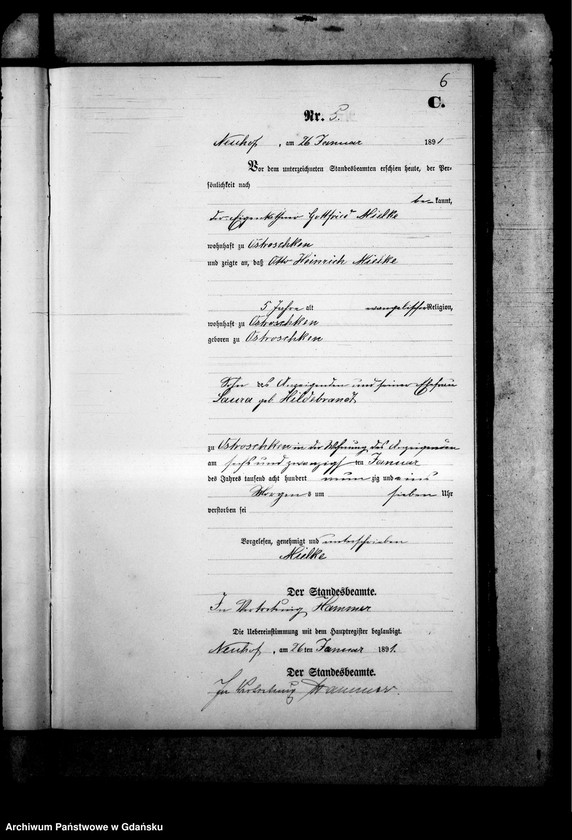 6
C.
Nr. 5.
Neuhof, am 26 Januar 1891
Vor dem unterzeichneten Standesbeamten erschien heute, der Per-
sönlichkeit nach
be kannt,
der Eigenkäthner Gottfried Mielke
wohnhaft zu Ostroschken
und zeigte an, daß Otto Heinrich Mielke
5 Jahre alt evangelischer Religion,
wohnhaft zu Ostroschken
geboren zu Ostroschken
Sohn des Anzeigenden und seiner Ehefrau
Laura geb. Hildebrandt
zu Ostroschken in der Wohnung des Anzeigenden
am sechs und zwanzigsten Januar
des Jahres tausend acht hundert neun zig und eins
Morgens um sieben Uhr
verstorben sei
Vorgelesen, genehmigt und unterschrieben
Mielke
Der Standesbeamte.
In Vertretung Hammer
Die Uebereinstimmung mit dem Hauptregister beglaubigt.
Neuhof, am 26ten Januar 1891.
Der Standesbeamte.
In Vertretung Hammer.
Archiwum Państwowe w Gdańsku